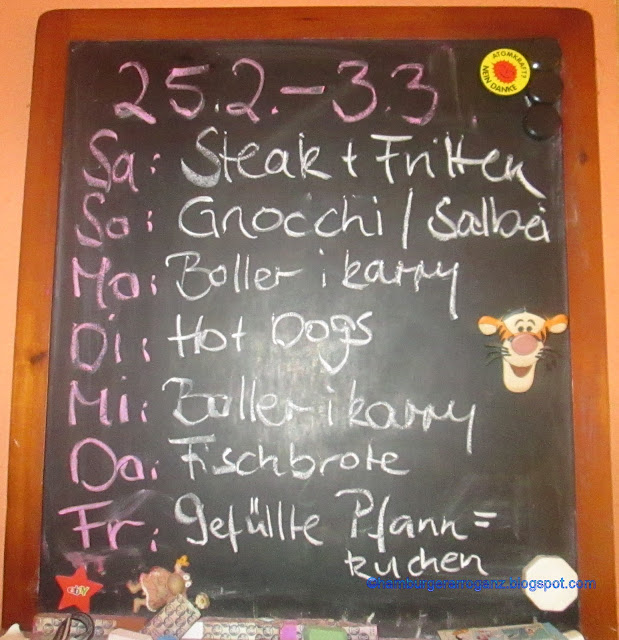 25.2.-3.3.
Sa: Steak + Fritten
So: Gnocchi / Salbei
Mo: Boller i karry
Di: Hot Dogs
Mi: Boller i karry
Do: Fischbrote
Fr: Gefüllte Pfann=
kuchen
ATOMKRAFT?
NEIN DANKE
©hamburgerarroganz.blogspot.com